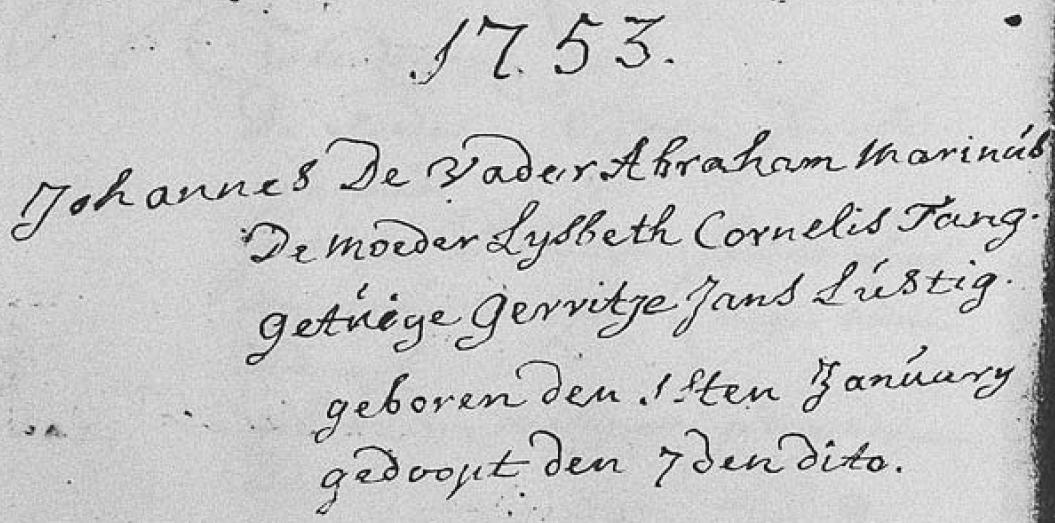 1753.
Johannes De Vader Abraham Marinús
De moeder Lysbeth Cornelis Tang.
getúige Gerritje Jans Lústig.
geboren den 1sten Janúary
gedoopt den 7den dito.